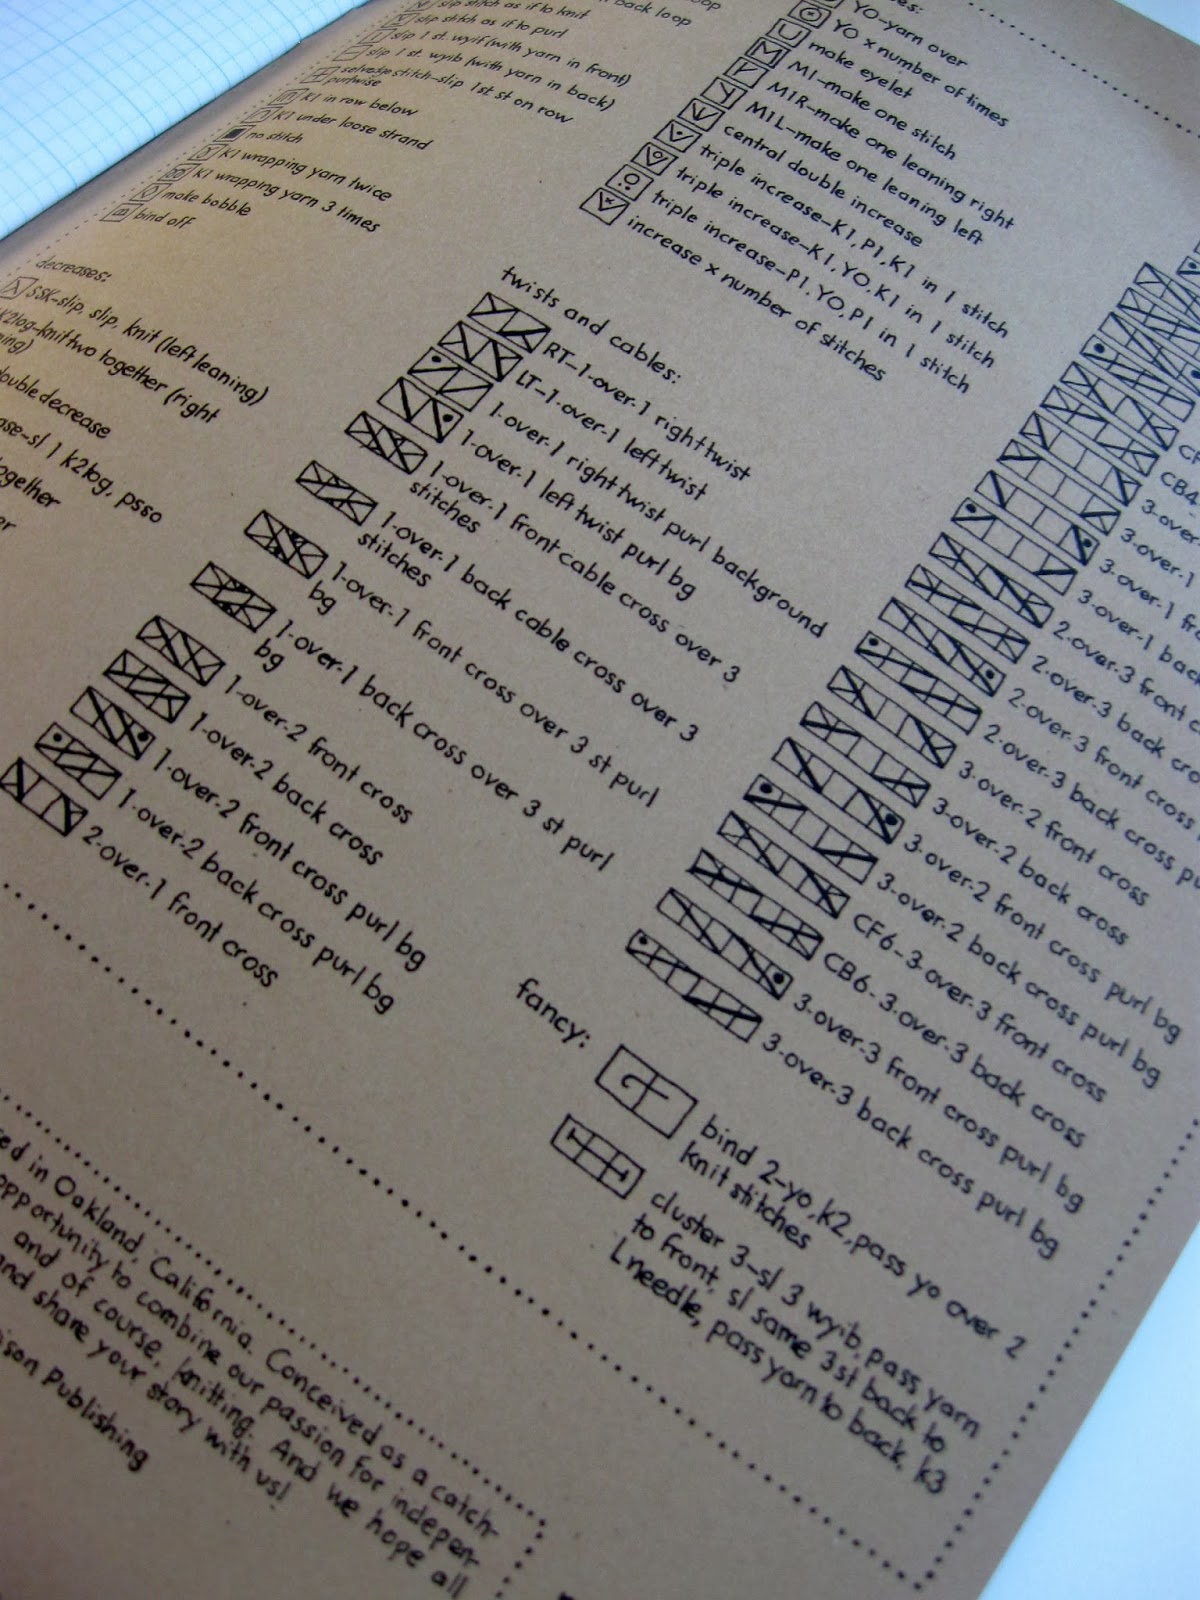 slip stitch as if to knit
slip stitch as if to purl
slip 1 st. wyif (with yarn in front)
slip 1 st. wyib (with yarn in back)
selvedge stitch-slip 1st st on row
purlwise
K1 in row below
K1 under loose strand
no stitch
K1 wrapping yarn twice
K1 wrapping yarn 3 times
make bobble
bind off
back loop
decreases:
SSK-slip, slip, knit (left leaning)
K2tog-knit two together (right
double decrease
sl 1 k2tog, psso
together
YO-yarn over
YO x number of times
make eyelet
M1-make one stitch
M1R-make one leaning right
M1L-make one leaning left
central double increase
triple increase-K1, P1, K1 in 1 stitch
triple increase-K1, YO, K1 in 1 stitch
triple increase-P1, YO, P1 in 1 stitch
increase x number of stitches
twists and cables:
RT-1-over-1 right twist
LT-1-over-1 left twist
1-over-1 right twist purl background
1-over-1 left twist purl bg
1-over-1 front cable cross over 3
stitches
1-over-1 back cable cross over 3
stitches
1-over-1 front cross over 3 st purl
bg
1-over-1 back cross over 3 st purl
bg
1-over-2 front cross
1-over-2 back cross
1-over-2 front cross purl bg
1-over-2 back cross purl bg
2-over-1 front cross
CB4
3-over-
3-over-1
3-over-1
3-over-1 back
2-over-3 front
2-over-3 back
2-over-3 front cross
2-over-3 back cross
3-over-2 front cross
3-over-2 back cross
3-over-2 front cross purl bg
3-over-2 back cross purl bg
CF6-3-over-3 front cross
CB6-3-over-3 back cross
3-over-3 front cross purl bg
3-over-3 back cross purl bg
fancy:
bind 2-yo, k2, pass yo over 2
knit stitches
cluster 3-sl 3 wyib, pass yarn
to front, sl same 3st back to
L needle, pass yarn to back, k3
in Oakland, California. Conceived as a catch-
opportunity to combine our passion for indepen-
and of course, knitting. And we hope all
and share your story with us!
Publishing